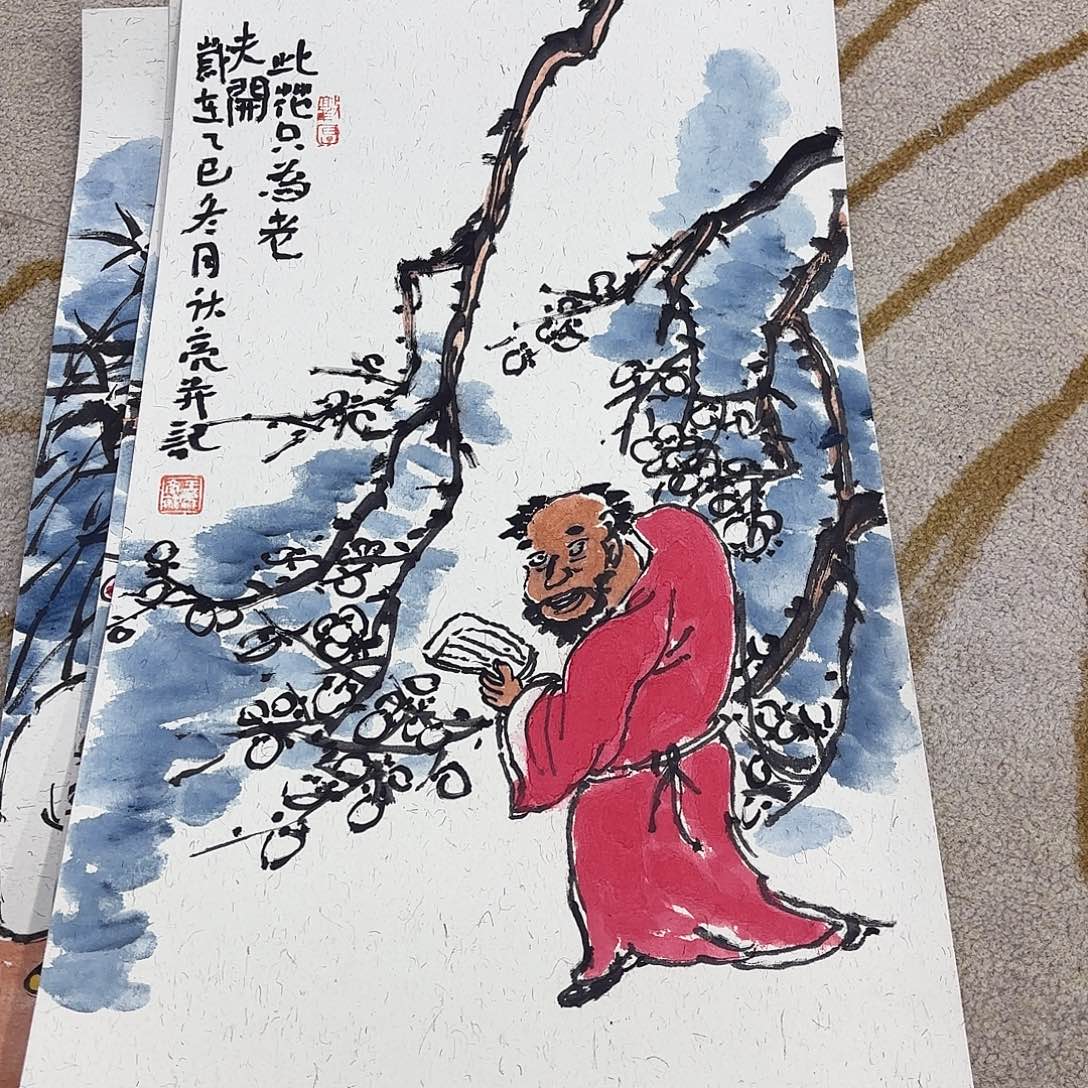 此花只為老
夫開
歲在乙巳冬月亮并記